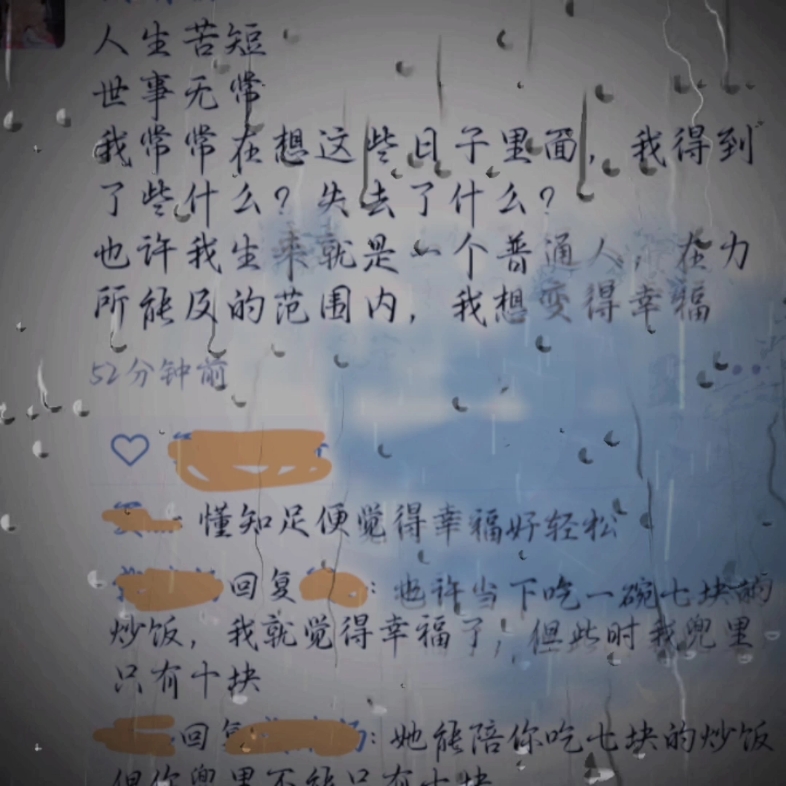 人生苦短
世事无常
我常常在想这些日子里面，我得到
了些什么？失去了什么？
也许我生来就是一个普通人，在力
所能及的范围内，我想变得幸福
52分钟前
懂知足便觉得幸福好轻松
回复：也许当下吃一碗七块的
炒饭，我就觉得幸福了，但此时我兜里
只有十块
回复：她能陪你吃七块的炒饭
但你兜里不能只有十块